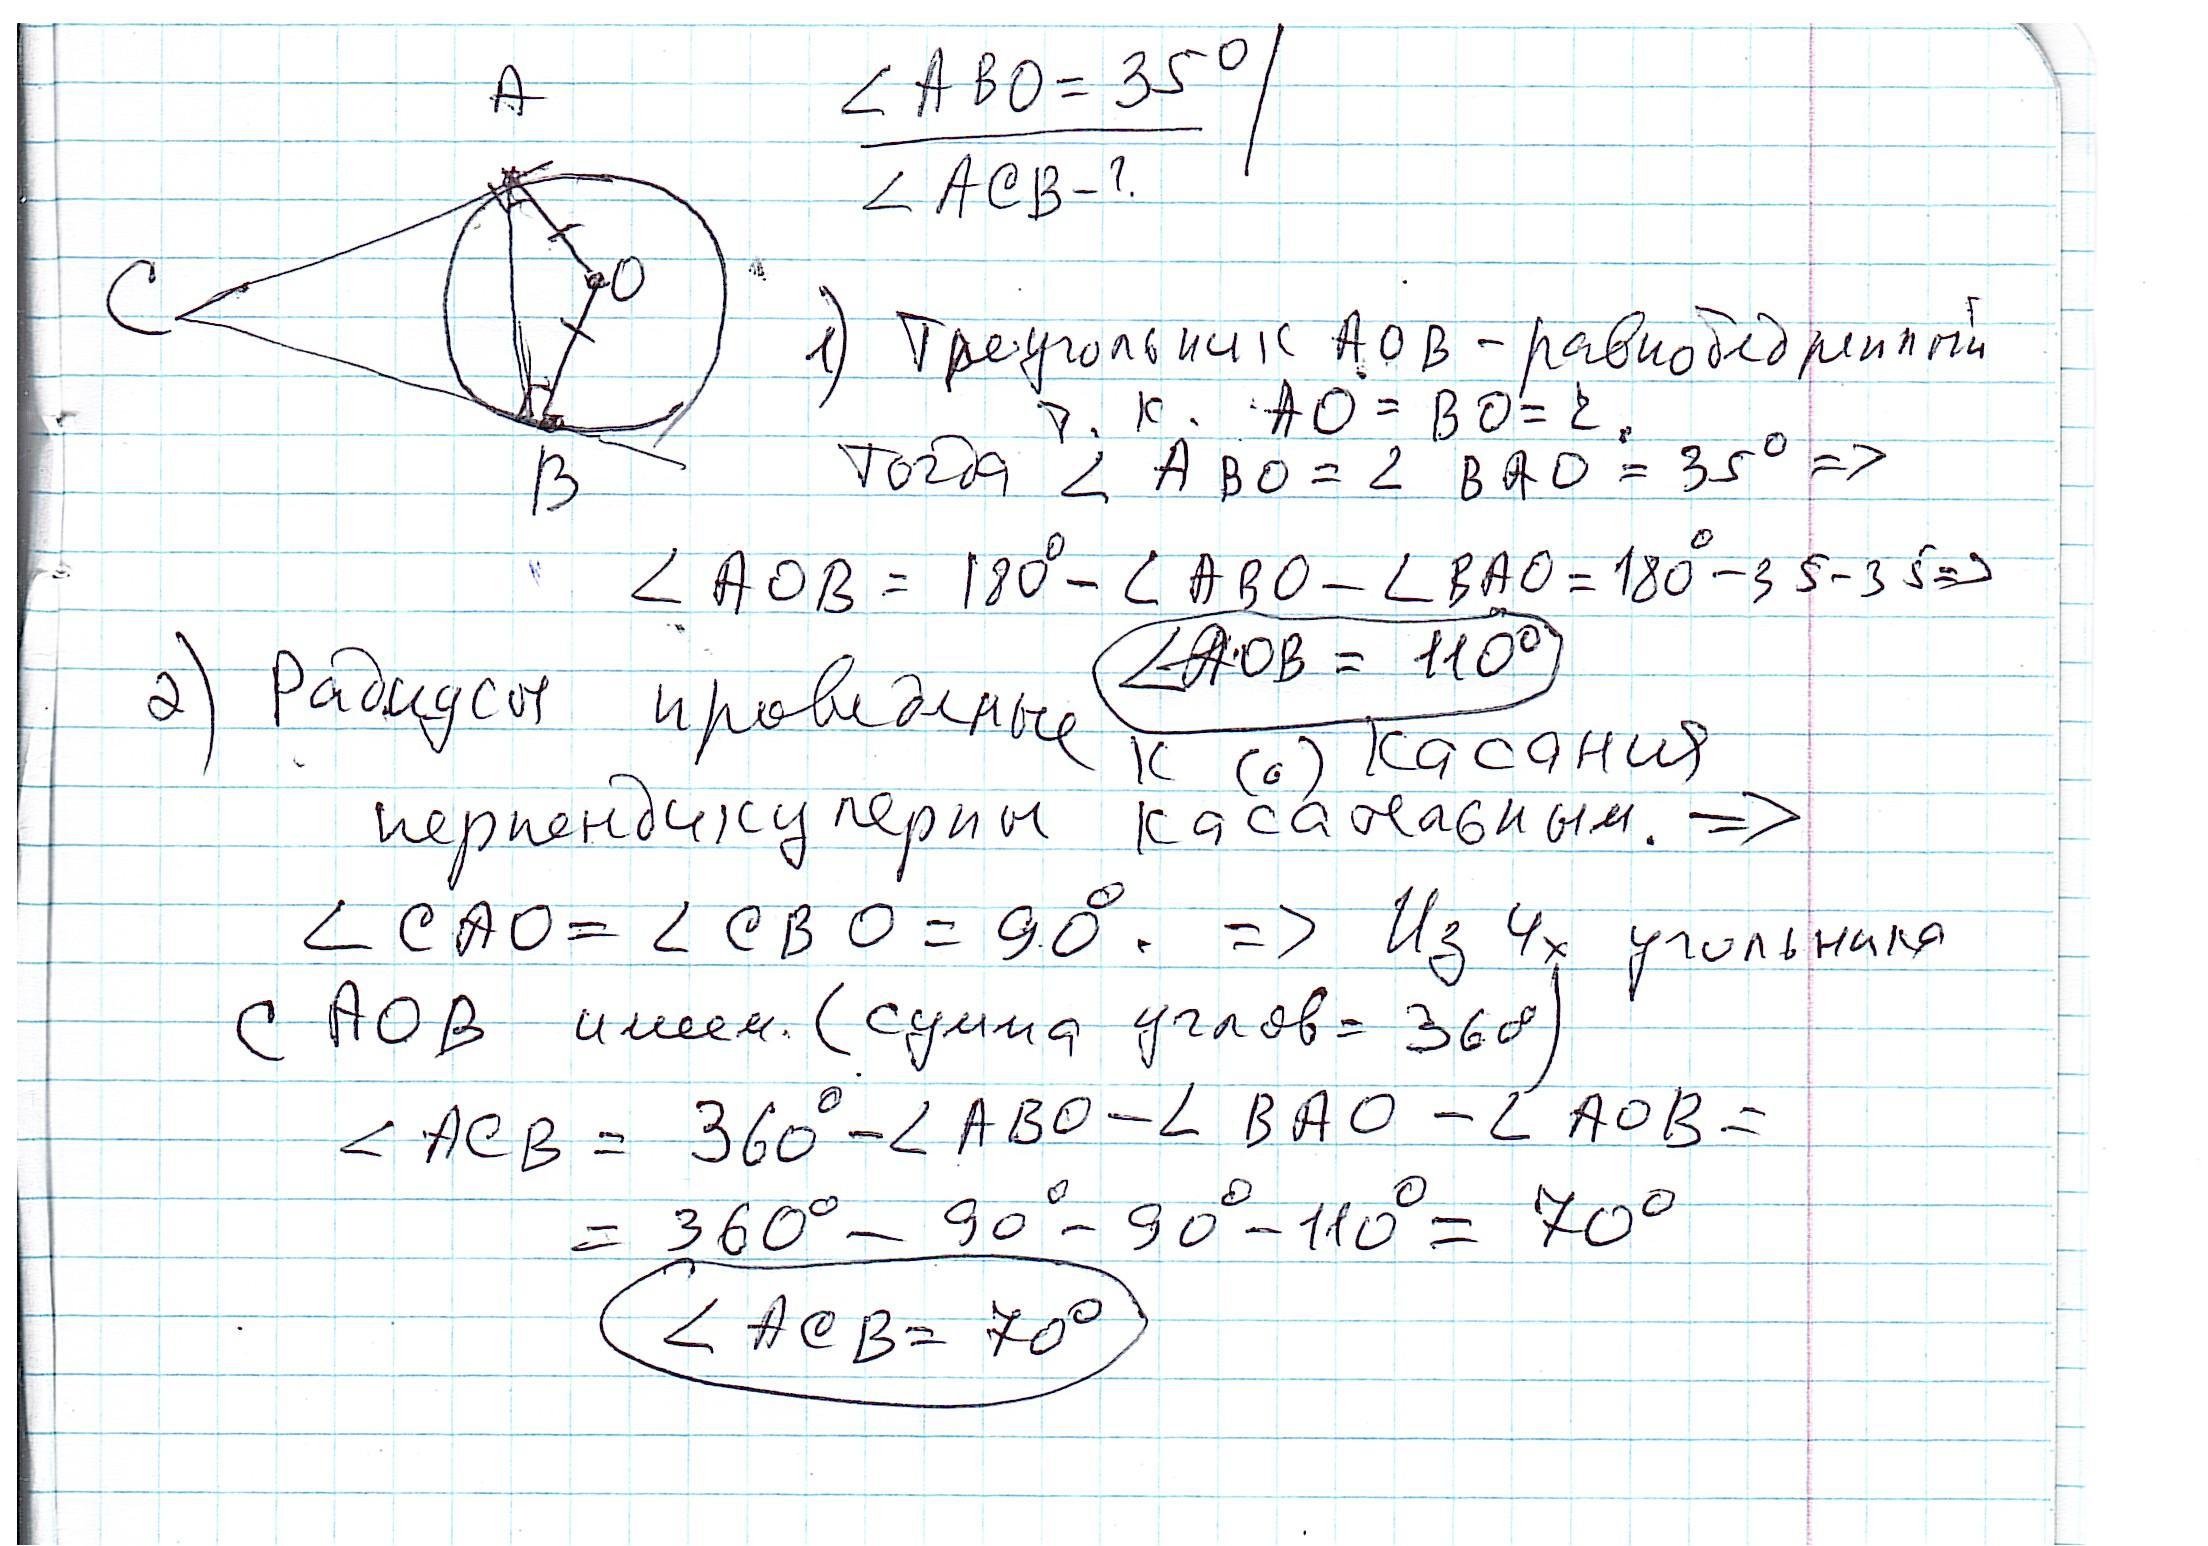 A
∠ABO = 35°
∠ACB - ?
C
O
B
1) Треугольник AOB - равнобедренный
т. к. AO = BO = r.
Тогда ∠ABO = ∠BAO = 35° =>
∠AOB = 180° - ∠ABO - ∠BAO = 180° - 35 - 35 =>
∠AOB = 110°
2) Радиусы проведенные
к (·) касания
перпендикулерны касательным. =>
∠CAO = ∠CBO = 90°. => Из 4х угольника
CAOB имеем. (сумма углов = 360°)
∠ACB = 360° - ∠ABO - ∠BAO - ∠AOB =
= 360° - 90° - 90° - 110° = 70°
∠ACB = 70°